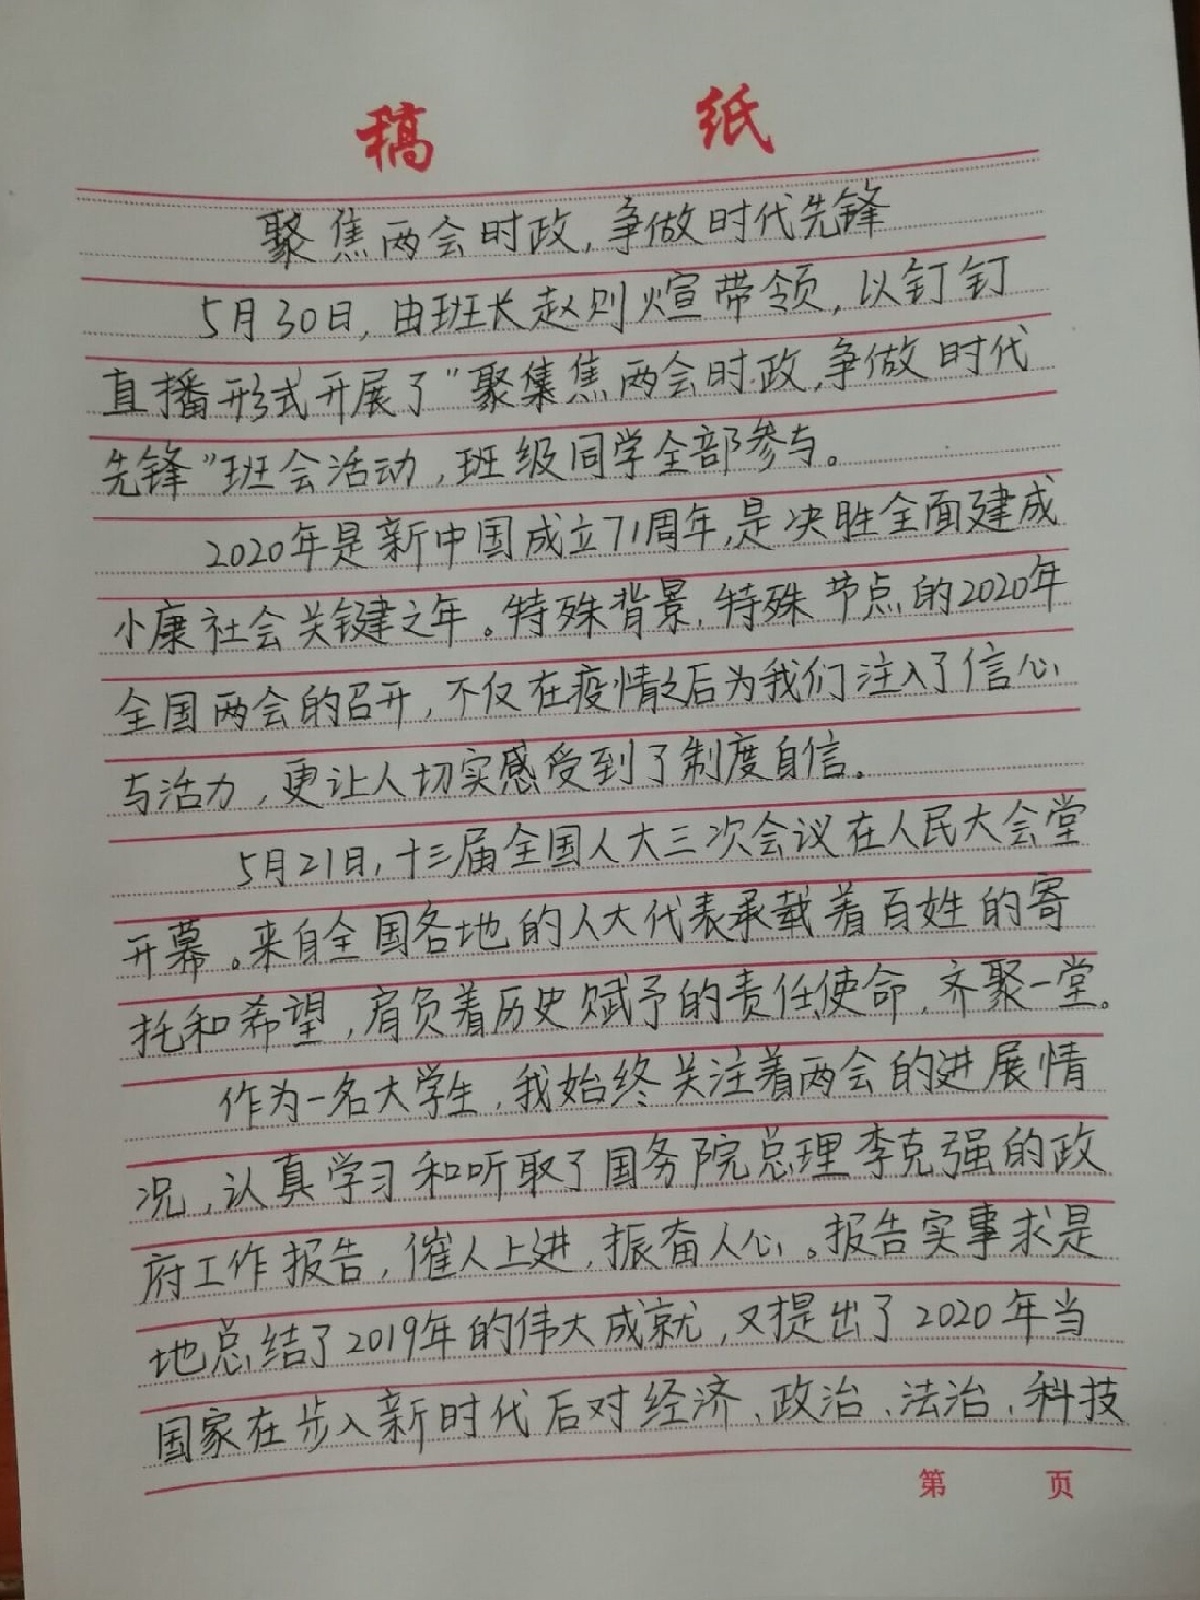 稿 纸
聚焦两会时政,争做时代先锋
5月30日,由班长赵则煊带领,以钉钉
直播形式开展了"聚集焦两会时政,争做时代
先锋"班会活动,班级同学全部参与。
2020年是新中国成立71周年,是决胜全面建成
小康社会关键之年。特殊背景,特殊节点的2020年
全国两会的召开,不仅在疫情之后为我们注入了信心
与活力,更让人切实感受到了制度自信。
5月21日,十三届全国人大三次会议在人民大会堂
开幕。来自全国各地的人大代表承载着百姓的寄
托和希望,肩负着历史赋予的责任使命,齐聚一堂。
作为一名大学生,我始终关注着两会的进展情
况,认真学习和听取了国务院总理李克强的政
府工作报告,催人上进,振奋人心。报告实事求是
地总结了2019年的伟大成就,又提出了2020年当
国家在步入新时代后对经济、政治、法治、科技
第 页